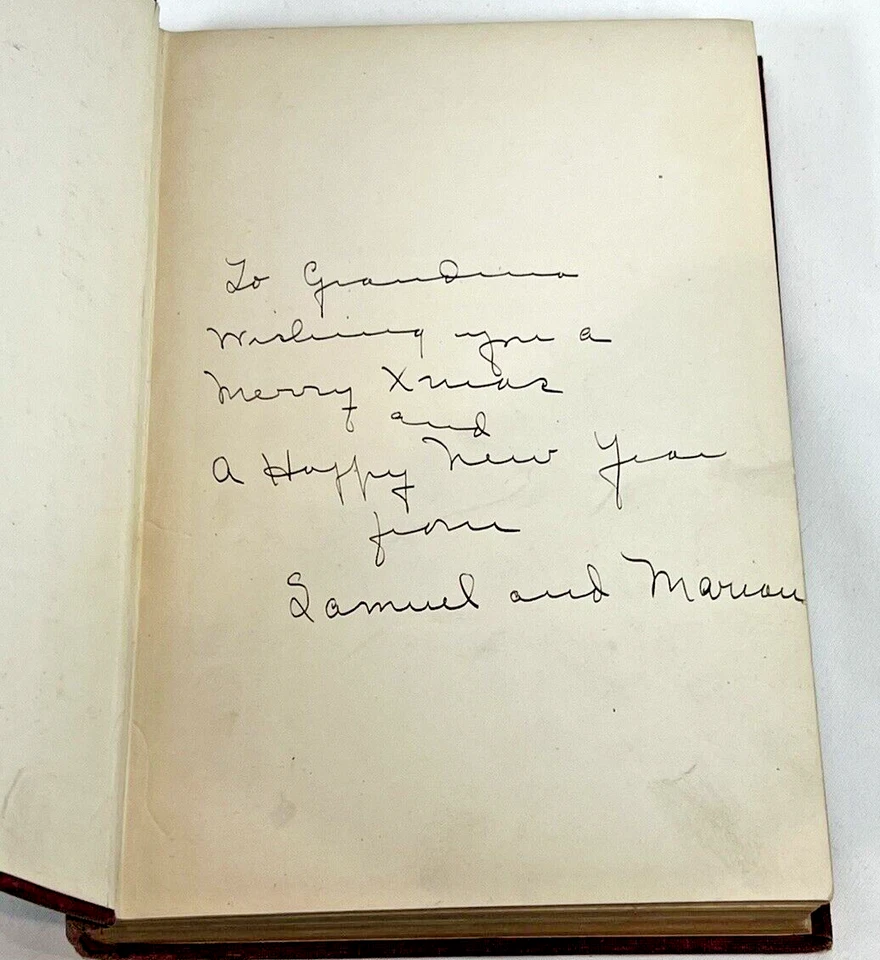 To Grandma
Wishing you a
Merry Xmas
and
A Happy New Year
from
Samuel and Marian